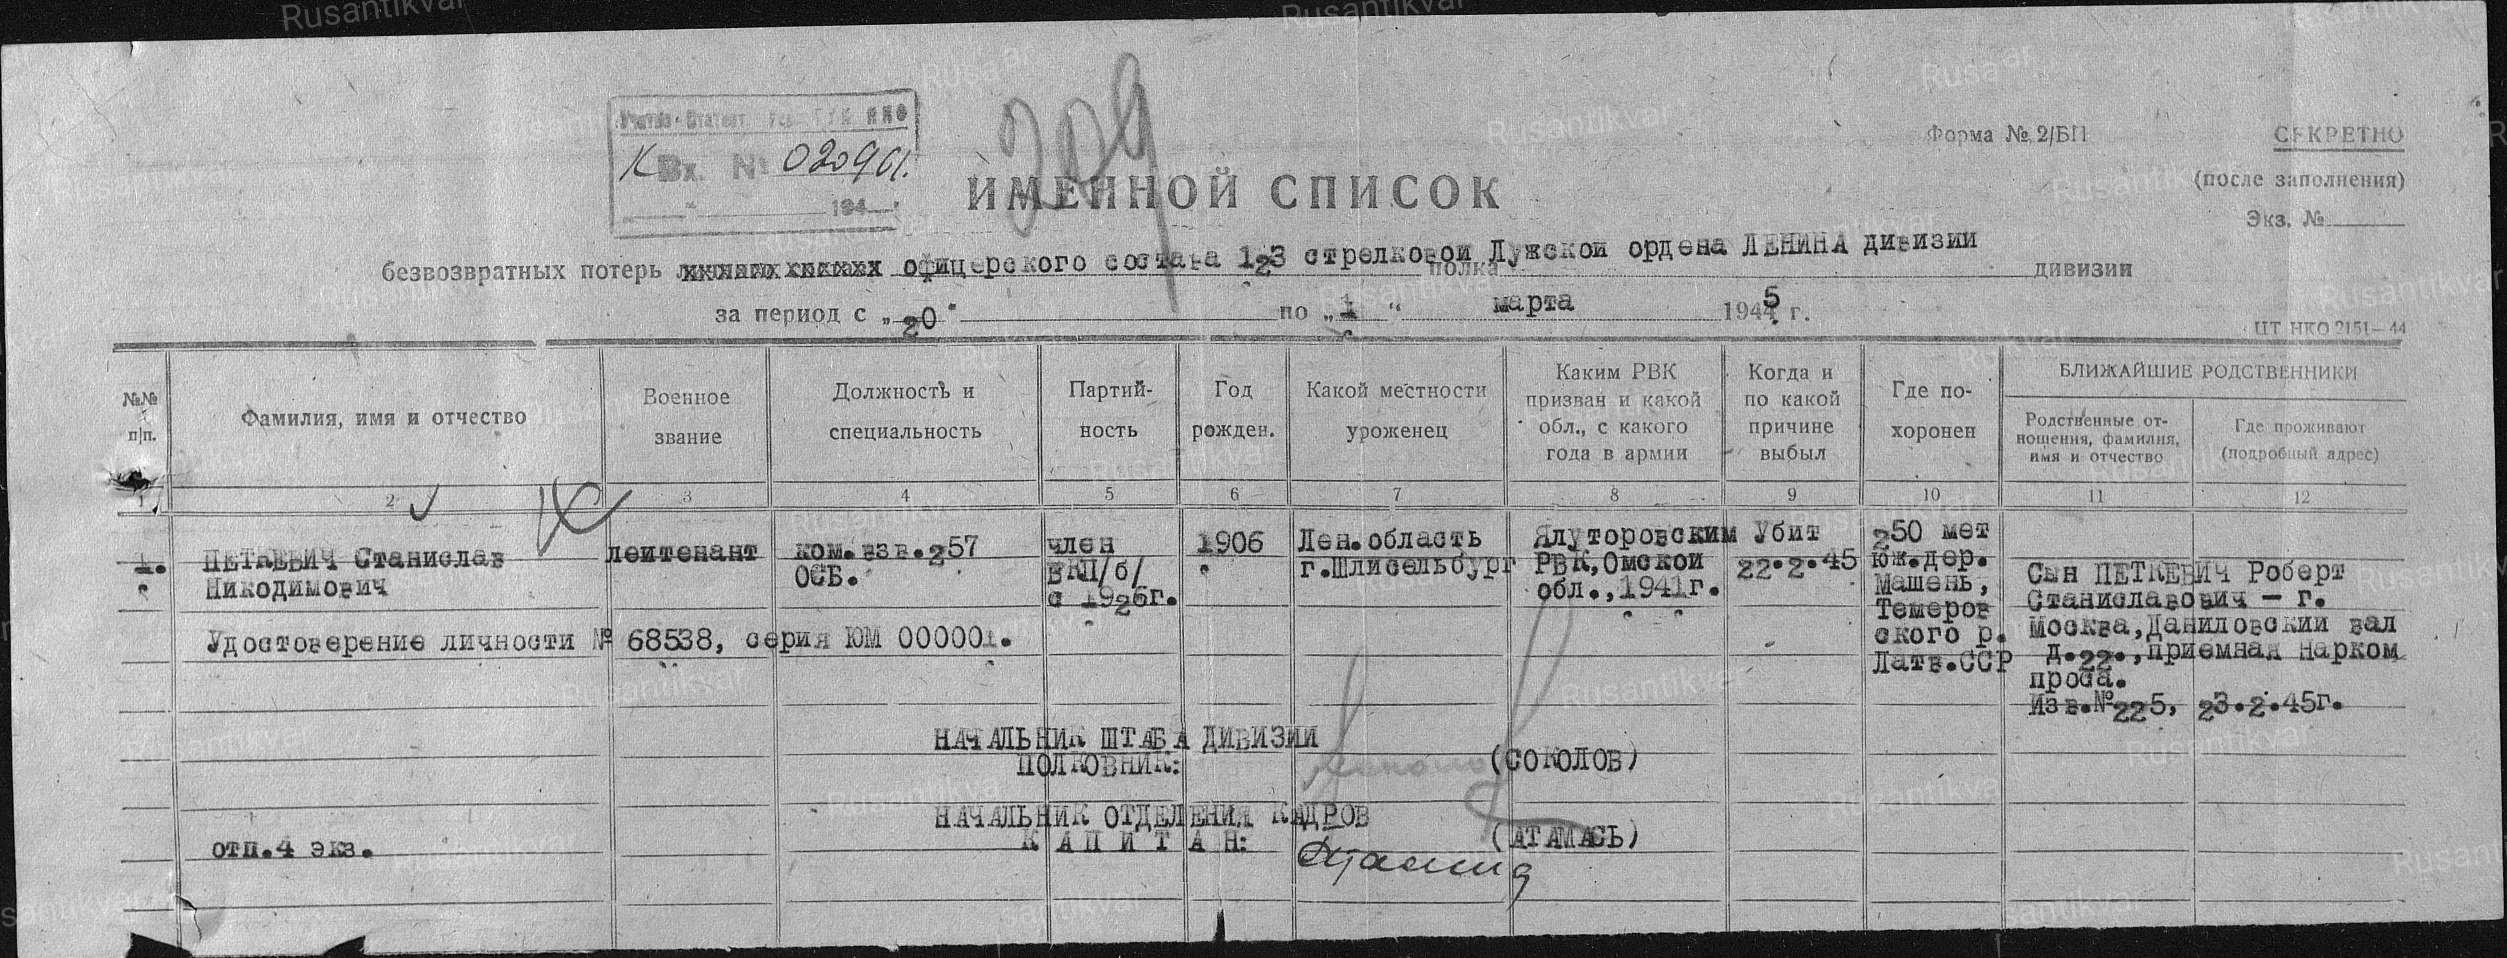 Учетно-Статист.
К Вх. № 020961.
194
309
Форма № 2/БП
СЕКРЕТНО
(после заполнения)
Экз. №
ИМЕННОЙ СПИСОК
безвозвратных потерь офицерского состава 123 стрелковой Лужской ордена ЛЕНИНА дивизии
полка дивизии
за период с „20“ по „1“ марта 1945 г.
ЦТ НКО 2151—44
№№ п|п.
Фамилия, имя и отчество
Военное звание
Должность и специальность
Партий-ность
Год рожден.
Какой местности уроженец
Каким РВК призван и какой обл., с какого года в армии
Когда и по какой причине выбыл
Где по-хоронен
БЛИЖАЙШИЕ РОДСТВЕННИКИ
Родственные от-ношения, фамилия, имя и отчество
Где проживают (подробный адрес)
1 2 3 4 5 6 7 8 9 10 11 12
1.
ПЕТКЕВИЧ Станислав
Никодимович
лейтенант
ком.взв.257
ОСБ.
член
ВКП/б/
с 1926г.
1906
Лен.область
г.Шлисельбург
Ялуторовским
РВК,Омской
обл.,1941г.
Убит
22.2.45
250 мет
юж.дер.
Машень,
Темеров
ского р.
Латв.ССР
Сын ПЕТКЕВИЧ Роберт
Станиславович – г.
Москва,Даниловский вал
д.22.,приемная Нарком
проса.
Изв.№225, 23.2.45г.
Удостоверение личности № 68538, серия ЮМ 000001.
НАЧАЛЬНИК ШТАБА ДИВИЗИИ
ПОЛКОВНИК: (СОКОЛОВ)
НАЧАЛЬНИК ОТДЕЛЕНИЯ КАДРОВ
КАПИТАН: (АТАМАСЬ)
отп.4 экз.
Rusantikvar